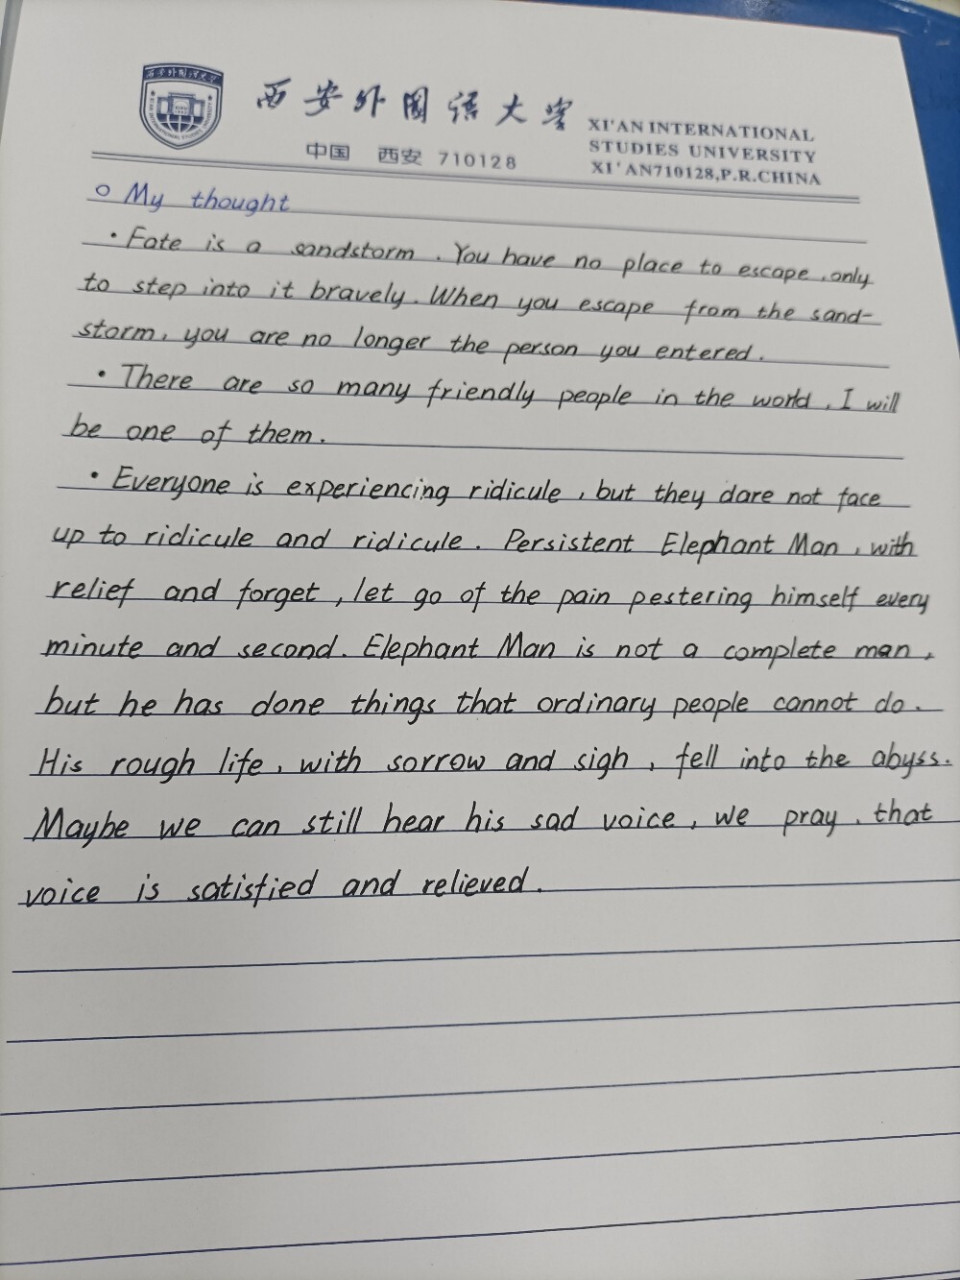 西安外国语大学
西安外国语大学
XI'AN INTERNATIONAL
STUDIES UNIVERSITY
中国 西安 710128
XI'AN710128,P.R.CHINA
My thought
· Fate is a sandstorm. You have no place to escape, only
to step into it bravely. When you escape from the sand-
storm, you are no longer the person you entered.
· There are so many friendly people in the world, I will
be one of them.
· Everyone is experiencing ridicule, but they dare not face
up to ridicule and ridicule. Persistent Elephant Man, with
relief and forget, let go of the pain pestering himself every
minute and second. Elephant Man is not a complete man,
but he has done things that ordinary people cannot do.
His rough life, with sorrow and sigh, fell into the abyss.
Maybe we can still hear his sad voice, we pray, that
voice is satisfied and relieved.